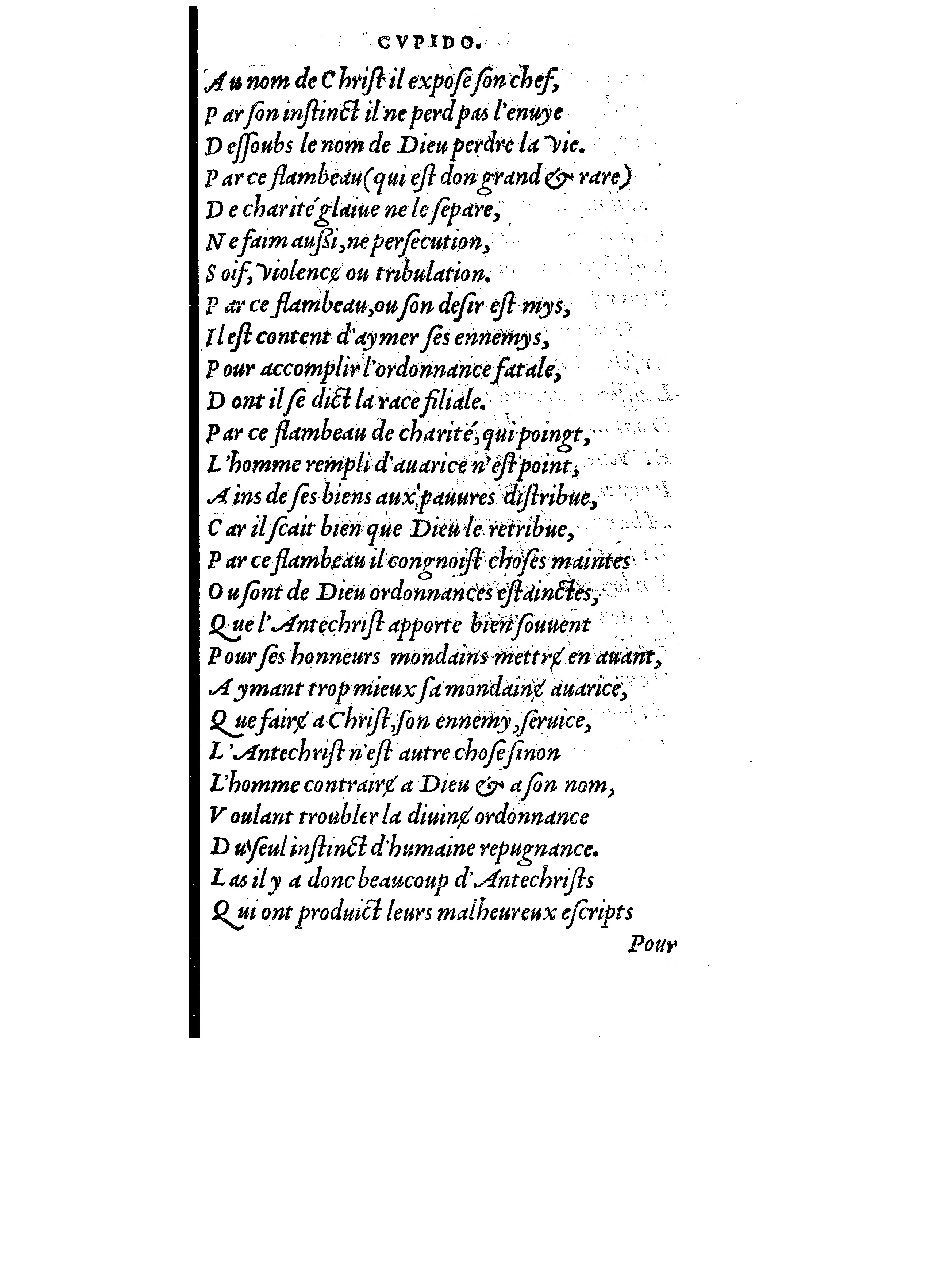 CVPIDO.
Au nom de Chriſt il expoſe ſon chef,
Par ſon inſtinct il ne perd pas l'enuye
Deſſoubs le nom de Dieu perdre la vie.
Par ce flambeau (qui eſt don grand & rare)
De charité glaiue ne le ſepare,
Ne faim auſsi, ne perſecution,
Soif, violencɇ ou tribulation.
Par ce flambeau, ou ſon deſir eſt mys,
Il eſt content d'aymer ſes ennemys,
Pour accomplir l'ordonnance fatale,
Dont il ſe dict la race filiale.
Par ce flambeau de charité, qui poingt,
L'homme rempli d'auarice n'eſt point,
Ains de ſes biens aux pauures diſtribue,
Car il ſcait bien que Dieu le retribue,
Par ce flambeau il congnoiſt choſes maintes
Ou ſont de Dieu ordonnances eſtainctes,
Que l'Antechriſt apporte bien ſouuent
Pour ſes honneurs mondains mettrɇ en auant,
Aymant trop mieux ſa mondainɇ auarice,
Que fairɇ a Chriſt, ſon ennemy, ſeruice,
L'Antechriſt n'eſt autre choſe ſinon
L'homme contrairɇ a Dieu & a ſon nom,
Voulant troubler la diuinɇ ordonnance
Du ſeul inſtinct d'humaine repugnance.
Las il y a donc beaucoup d'Antechriſts
Qui ont produict leurs malheureux eſcripts
Pour